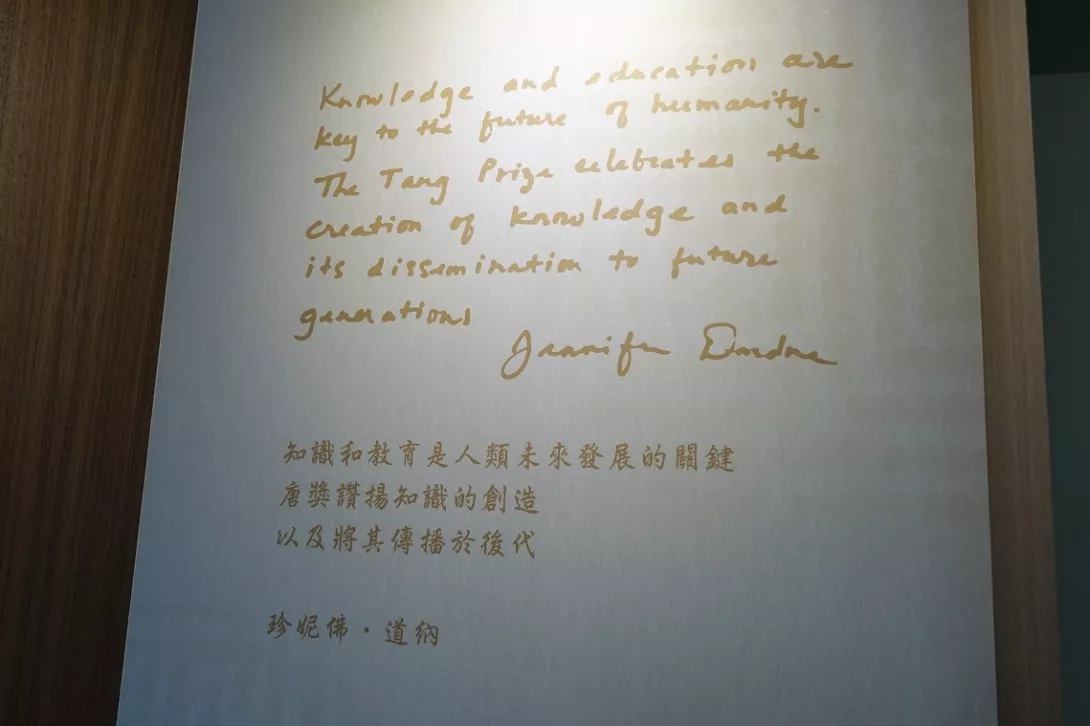 Knowledge and education are
key to the future of humanity.
The Tang Prize celebrates the
creation of knowledge and
its dissemination to future
generations
Jennifer Doudna
知識和教育是人類未來發展的關鍵
唐獎讚揚知識的創造
以及將其傳播於後代
珍妮佛・道納